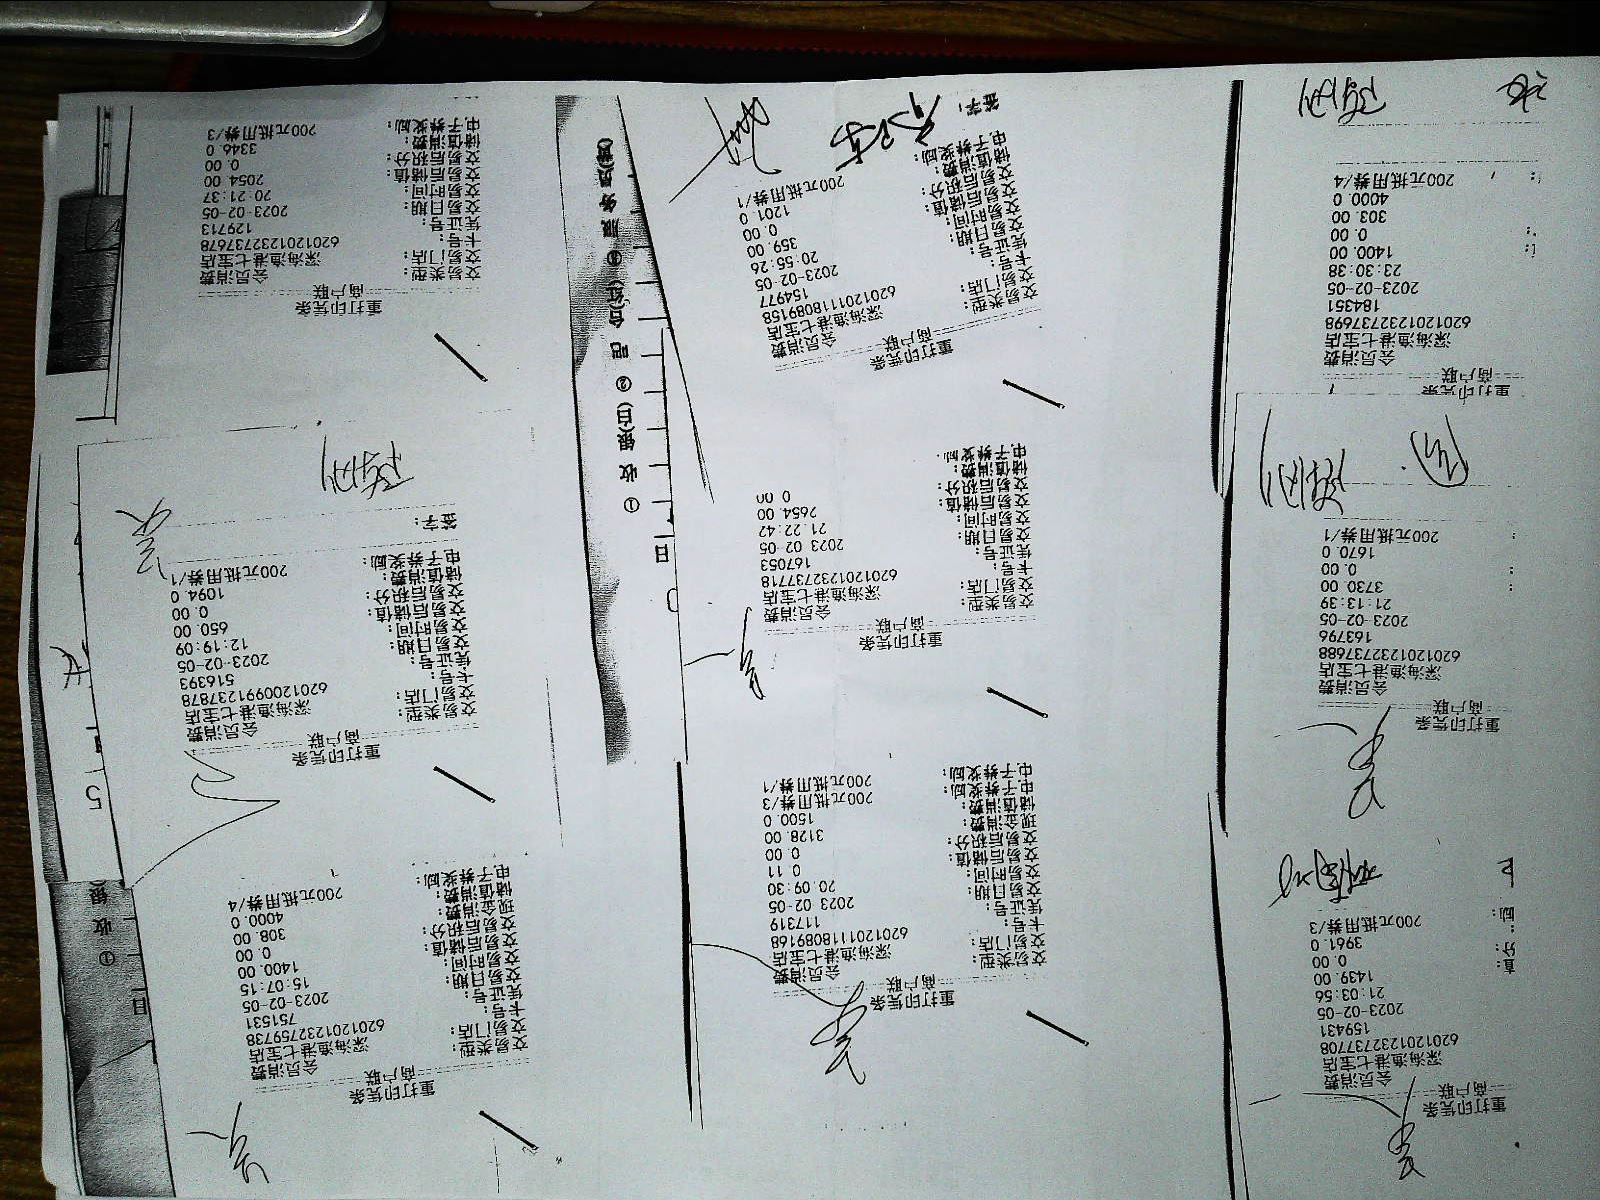 重打印凭条
商户联
会员消费
深海渔港七宝店
6201201232737708
159431
2023-02-05
21:03:56
1439.00
0.00
3961.0
200元抵用券/3
重打印凭条
商户联
会员消费
深海渔港七宝店
6201201232737688
163796
2023-02-05
21:13:39
3730.00
0.00
1670.0
200元抵用券/1
重打印凭条
商户联
会员消费
深海渔港七宝店
6201201232737698
184351
2023-02-05
23:30:38
1400.00
0.00
303.00
4000.0
200元抵用券/4
重打印凭条
商户联
交易类型: 会员消费
交易门店: 深海渔港七宝店
卡号: 6201201118089168
凭证号: 117319
交易日期: 2023 02-05
交易时间: 20:09:30
交易后储值: 0.11
交易后积分: 0.00
现金消费: 3128.00
储值消费: 1500.0
电子券奖励: 200元抵用券/3
电子券奖励: 200元抵用券/1
重打印凭条
商户联
交易类型: 会员消费
交易门店: 深海渔港七宝店
卡号: 6201201232737718
凭证号: 167053
交易日期: 2023 02-05
交易时间: 21:22:42
交易后储值: 2654.00
交易后积分: 0.00
储值消费:
电子券奖励:
重打印凭条
商户联
交易类型: 会员消费
交易门店: 深海渔港七宝店
卡号: 6201201118089158
凭证号: 154977
交易日期: 2023-02-05
交易时间: 20:55:26
交易后储值: 359.00
交易后积分: 0.00
储值消费: 1201.0
电子券奖励: 200元抵用券/1
签字:
日
①收银(白)②吧台(红)③服务员(黄)
重打印凭条
商户联
交易类型: 会员消费
交易门店: 深海渔港七宝店
卡号: 6201201232759738
凭证号: 751531
交易日期: 2023-02-05
交易时间: 15:07:15
交易后储值: 1400.00
交易后积分: 0.00
现金消费: 308.00
储值消费: 4000.0
电子券奖励: 200元抵用券/4
重打印凭条
商户联
交易类型: 会员消费
交易门店: 深海渔港七宝店
卡号: 6201200991237878
凭证号: 516393
交易日期: 2023-02-05
交易时间: 12:19:09
交易后储值: 650.00
交易后积分: 0.00
储值消费: 1094.0
电子券奖励: 200元抵用券/1
签字:
重打印凭条
商户联
交易类型: 会员消费
交易门店: 深海渔港七宝店
卡号: 6201201232737678
凭证号: 129713
交易日期: 2023-02-05
交易时间: 20:21:37
交易后储值: 2054.00
交易后积分: 0.00
储值消费: 3346.0
电子券奖励: 200元抵用券/3
日
①收银
5